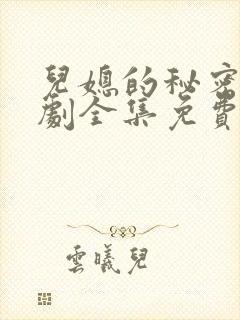 兒媳的秘密
劇全集免費
雲曦兒